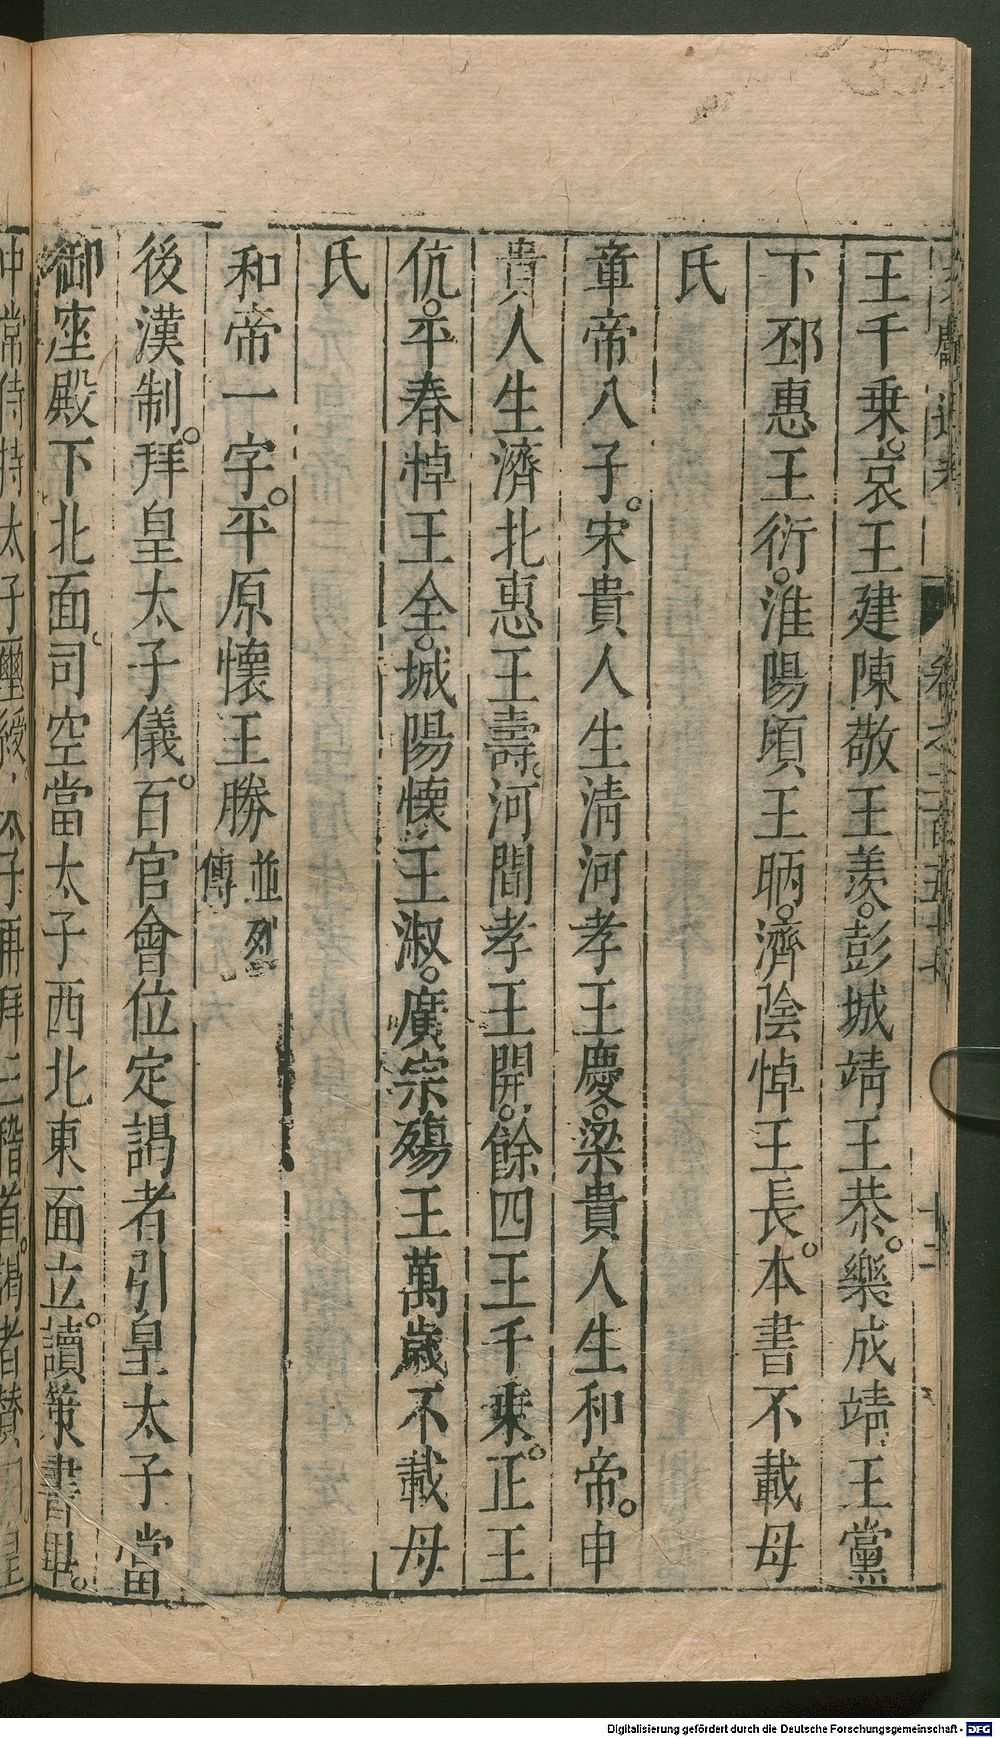 文獻通考 卷之二百五十七 十二
王千乘哀王建陳敬王羨彭城靖王恭樂成靖王黨
下邳惠王衍淮陽頃王昞濟陰悼王長本書不載母
氏
章帝八子宋貴人生清河孝王慶梁貴人生和帝申
貴人生濟北惠王壽河間孝王開餘四王千乘正王
伉平春悼王全城陽懷王淑廣宗殤王萬歲不載母
氏
和帝一字平原懷王勝並列傳
後漢制拜皇太子儀百官會位定謁者引皇太子當
御座殿下北面司空當太子西北東面立讀策書畢
中常侍持太子璽綬 太子再拜三稽首謁者贊 皇
Digitalisierung gefördert durch die Deutsche Forschungsgemeinschaft - DFG